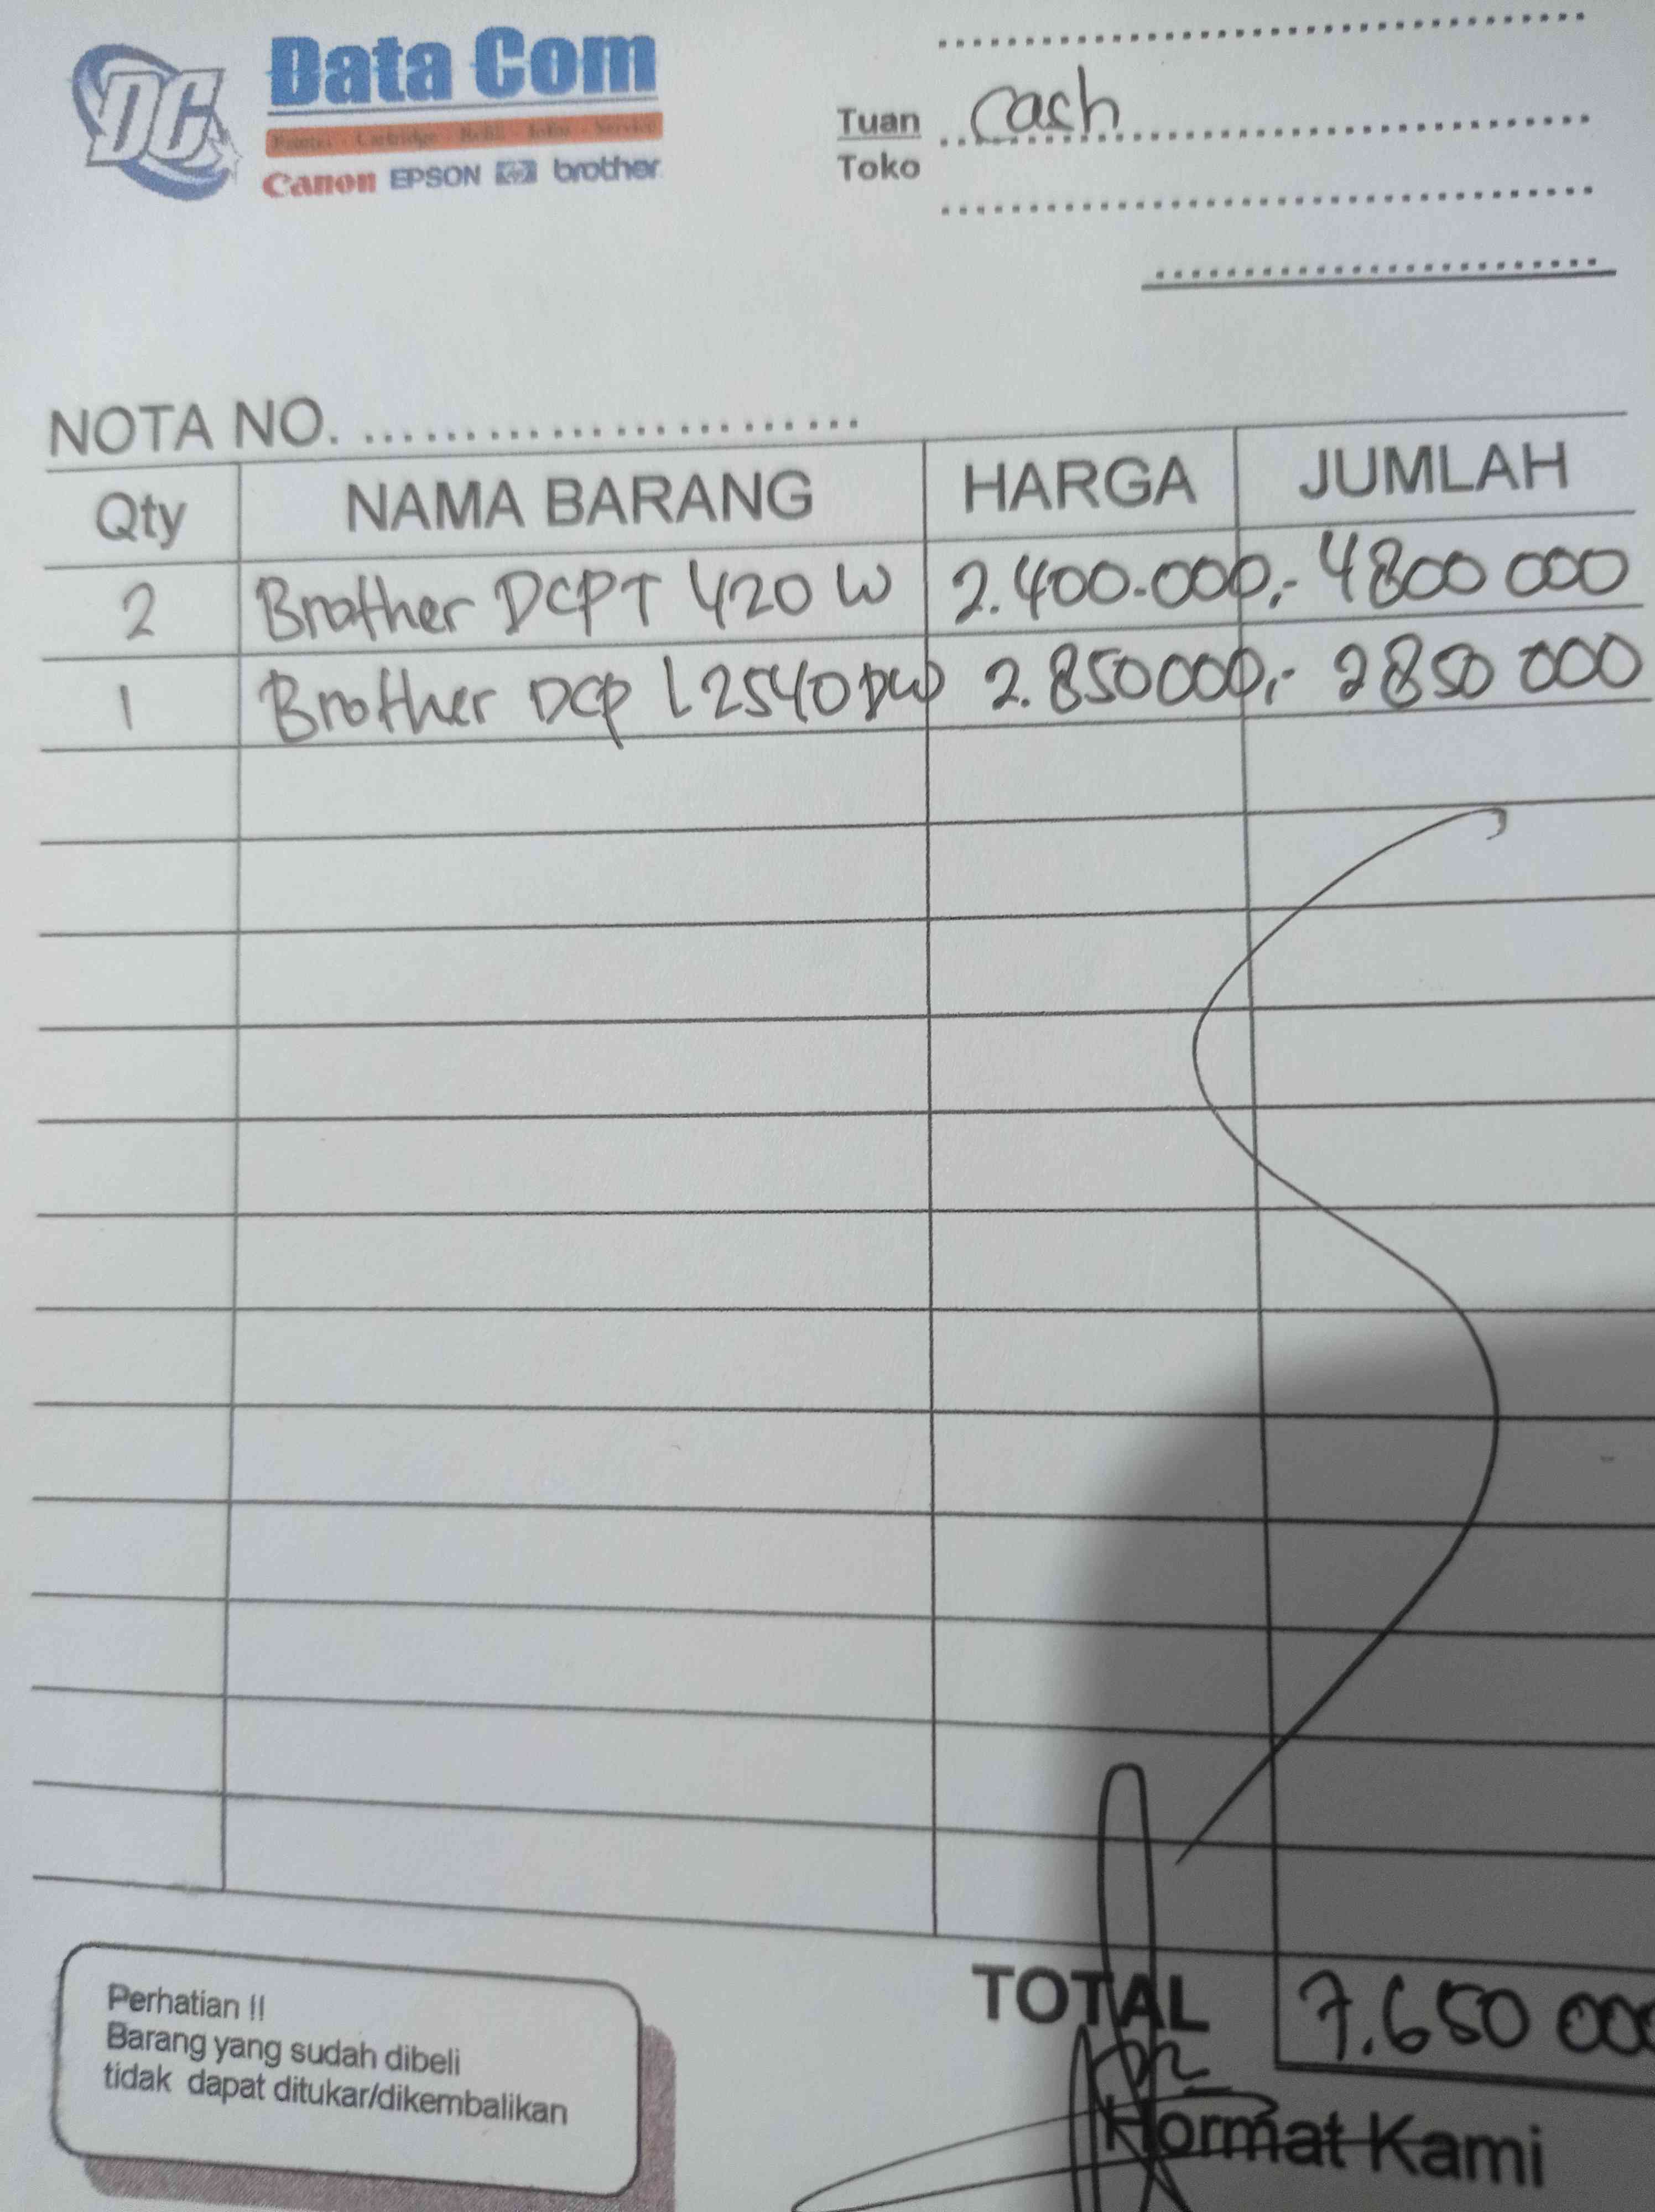 DC Data Com
Printer - Cartridge - Refill - Infus - Service
Canon EPSON hp brother
Tuan Cash
Toko
NOTA NO.
Qty NAMA BARANG HARGA JUMLAH
2 Brother DCPT 420 W 2.400.000,- 4800 000
1 Brother DCP L2540DW 2.850000,- 2850 000
TOTAL 7.650 000
Perhatian !!
Barang yang sudah dibeli
tidak dapat ditukar/dikembalikan
Hormat Kami